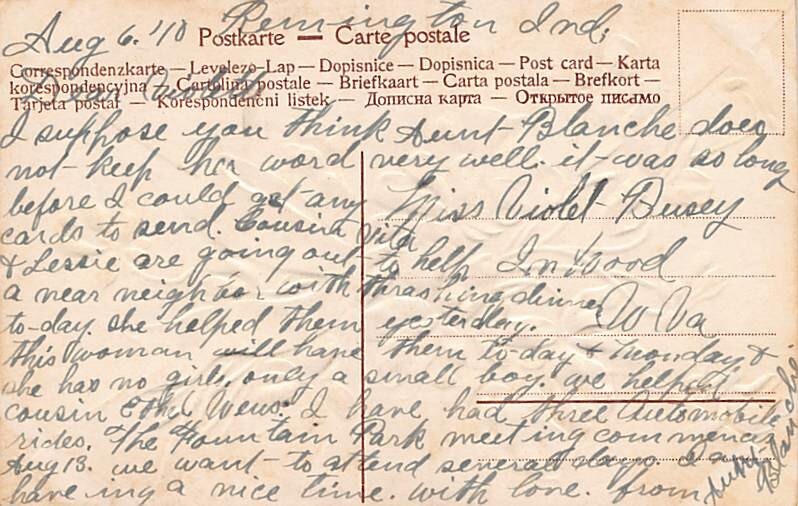 Remington Ind.
Aug 6. '10
Postkarte — Carte postale
Correspondenzkarte — Levelezo-Lap — Dopisnice — Dopisnica — Post card — Karta
korespondencyjna — Cartolina postale — Briefkaart — Carta postala — Brefkort —
Tarjeta postal — Korespondencni listek — Дописна карта — Открытое писмо
Dear Violet
I suppose you think Aunt Blanche does
not keep her word very well. it was so long
before I could get any
cards to send. Cousin Vita
& Lessie are going out to help
a near neighbor with thrashing dinner
to-day. She helped them yesterday.
this woman will have them to-day & Monday &
she has no girls. only a small boy. we helped
cousin Ethel Wens. I have had three Automobile
rides. The Fountain Park meeting commences
Aug 13. we want to attend several days. I am
have ing a nice time. with love. from
Aunt Blanche
Miss Violet Busey
Inwood
W Va